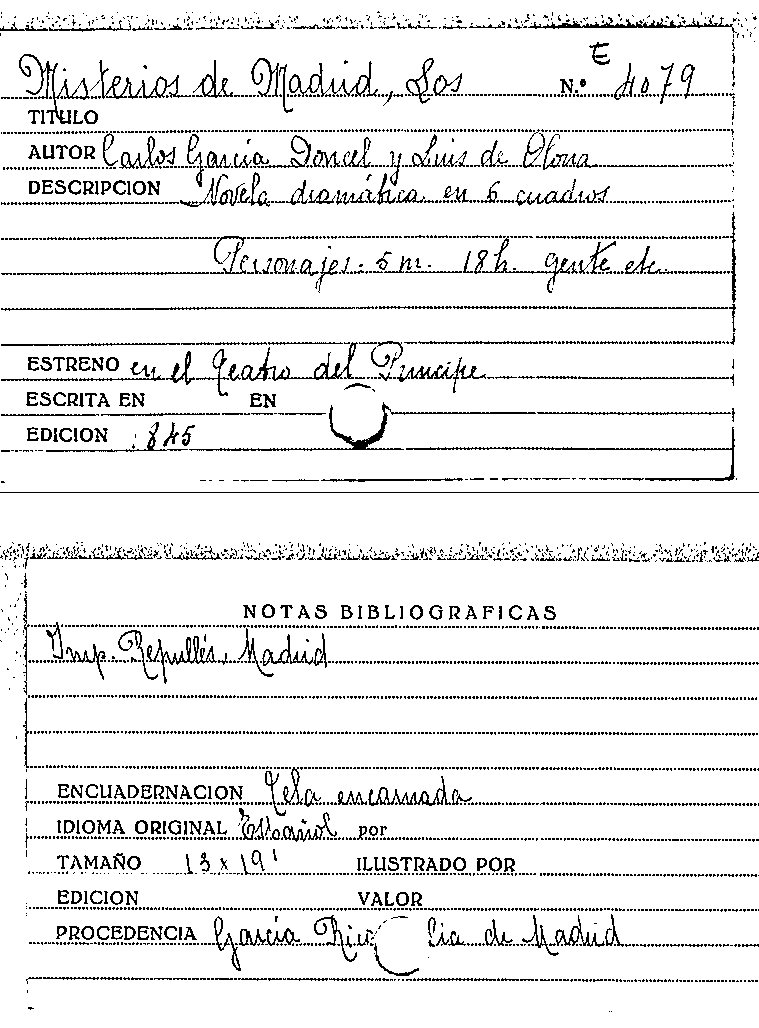 E
Misterios de Madrid, Los N.º 4079
TITULO
AUTOR Carlos García Doncel y Luis de Olona
DESCRIPCION Novela dramática en 6 cuadros
Personajes: 5 m. 18 h. gente etc.
ESTRENO en el Teatro del Principe
ESCRITA EN EN
EDICION 1845
NOTAS BIBLIOGRAFICAS
Imp. Repullés, Madrid
ENCUADERNACION Tela encarnada
IDIOMA ORIGINAL Español por
TAMAÑO 13 x 19' ILUSTRADO POR
EDICION VALOR
PROCEDENCIA García Rico Cia de Madrid